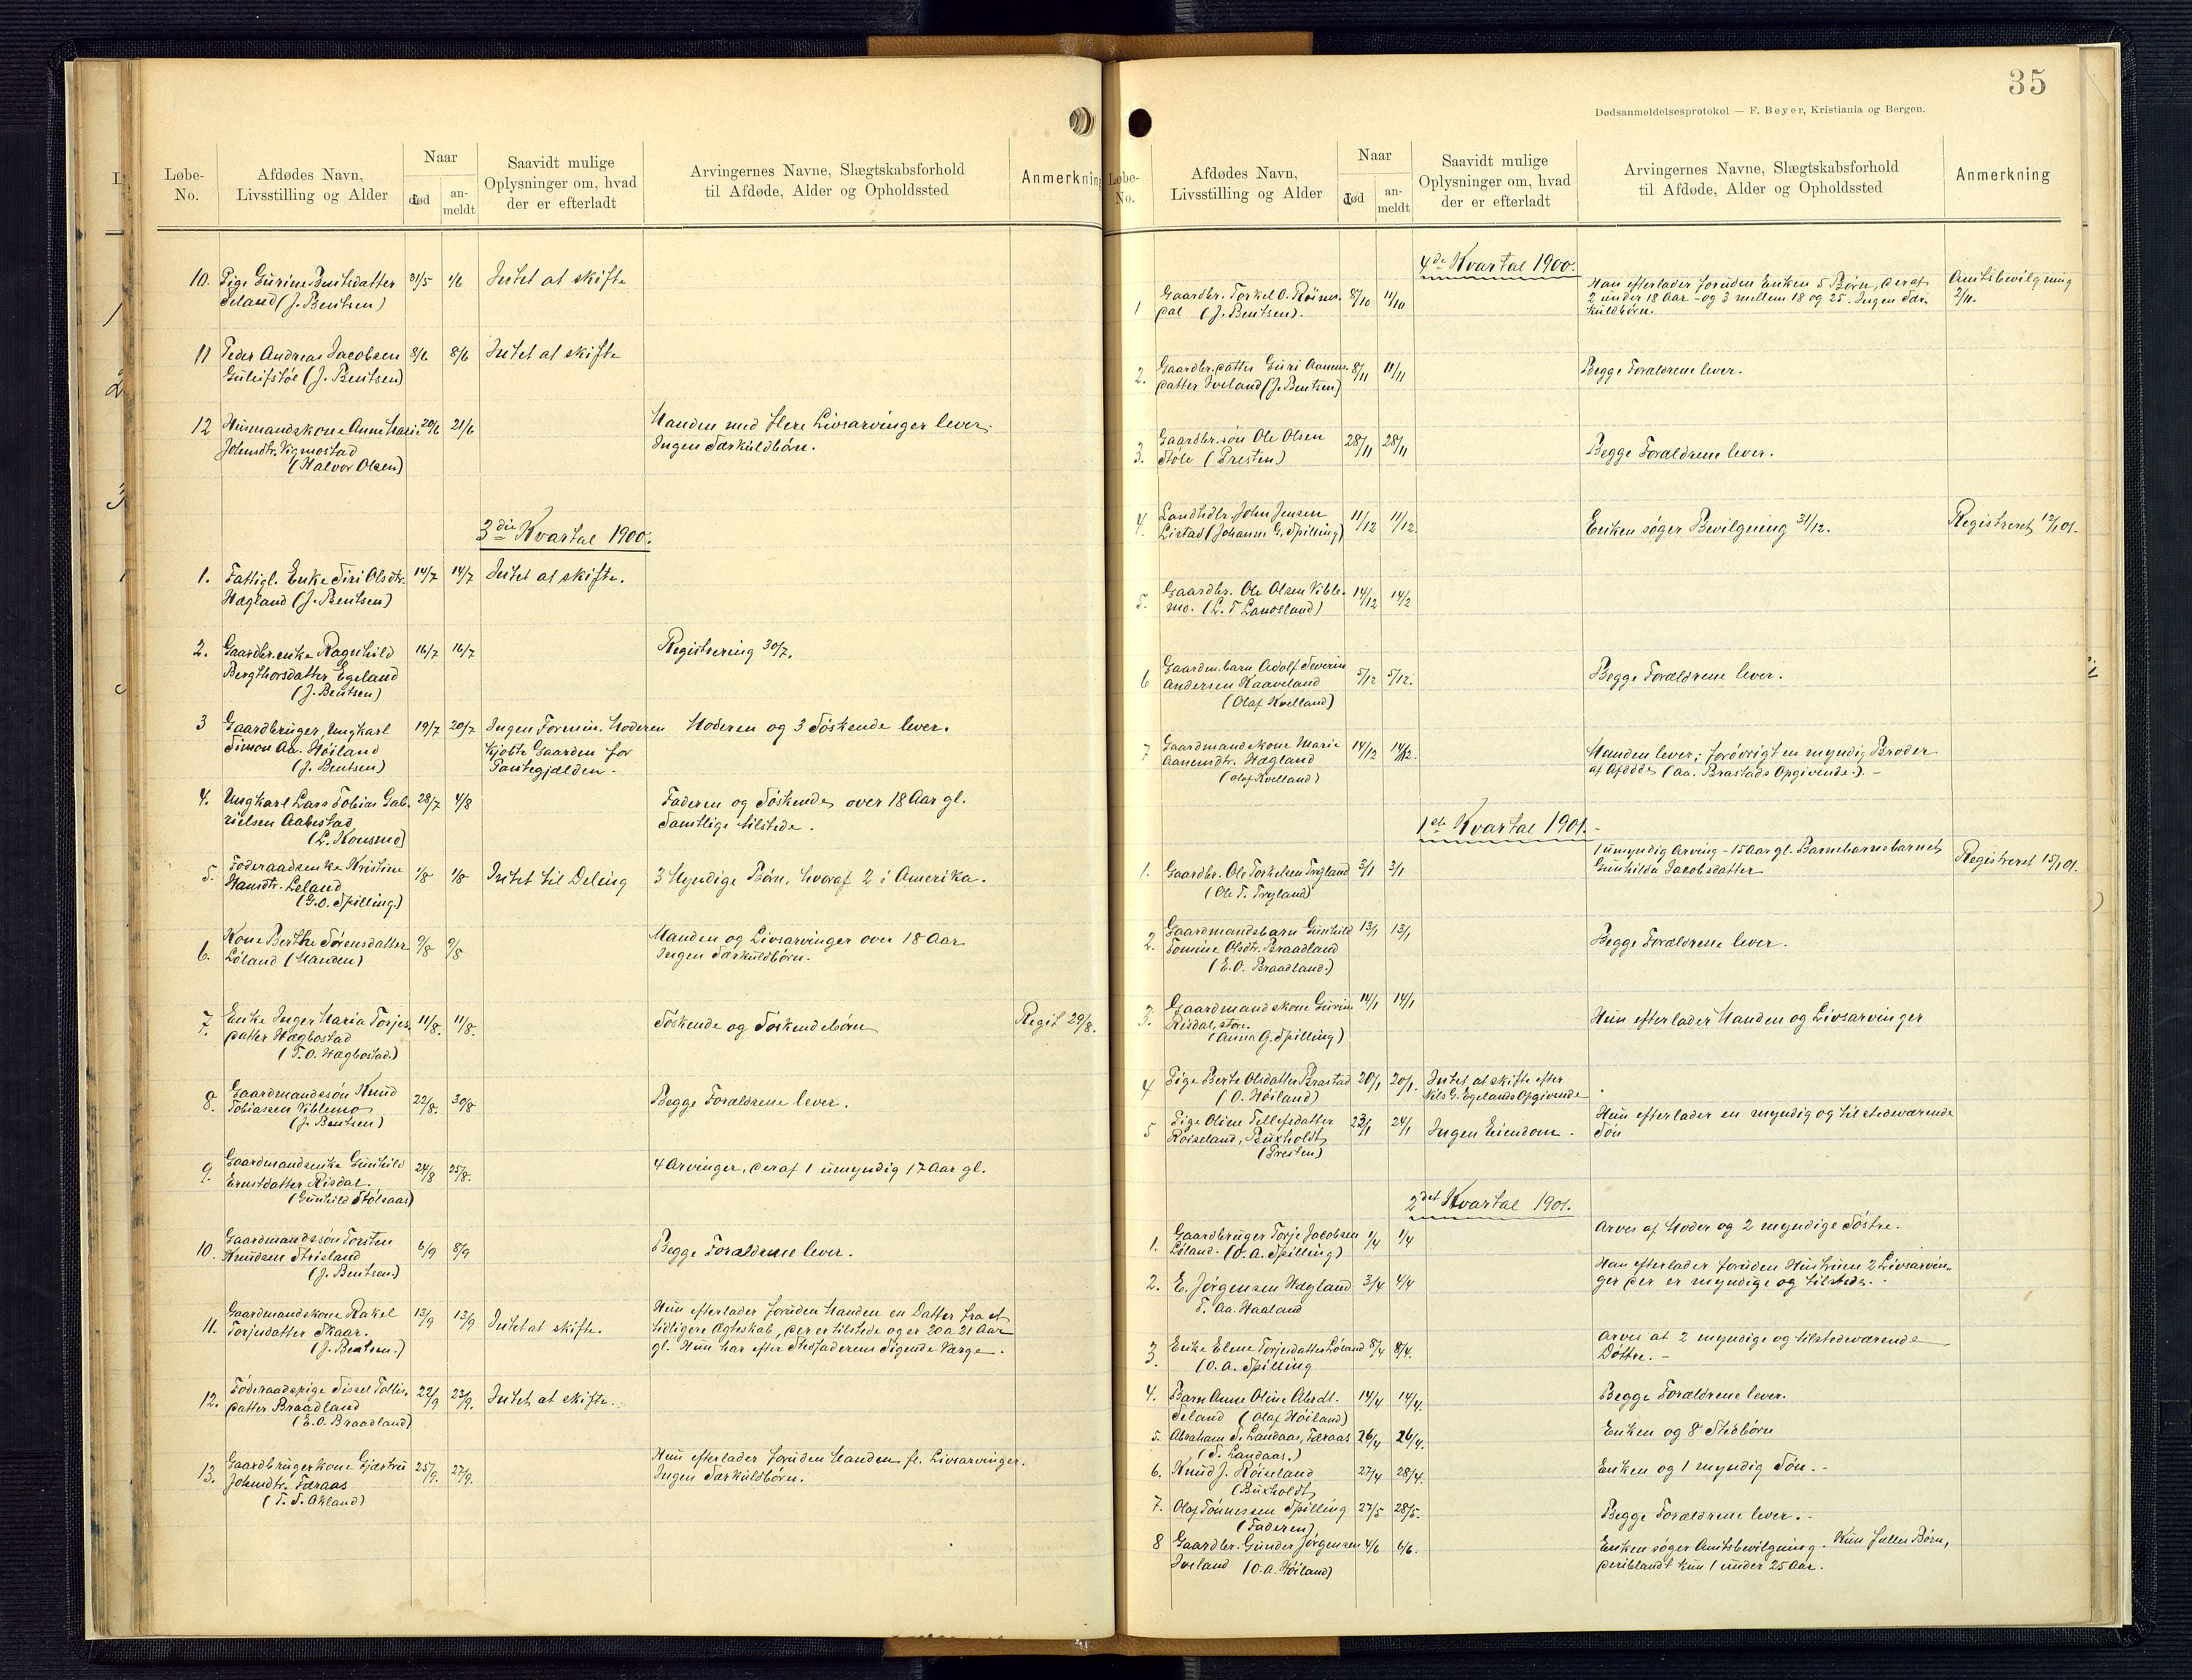 Løbe-No.
Afdødes Navn, Livsstilling og Alder
Naar
død
an-meldt
Saavidt mulige Oplysninger om, hvad der er efterladt
Arvingernes Navne, Slægtskabsforhold til Afdøde, Alder og Opholdssted
Anmerkning
10. Pige Gurine Bentsdatter 31/5 1/6 Intet at skifte
Seland (J. Bentsen)
11 Peder Andreas Jacobsen 8/6 8/6 Intet at skifte
(J. Bentsen)
12 Husmandskone Anne Marie 20/6 21/6 Manden med flere Livsarvinger lever.
Johnsdtr. Vigmostad Ingen Særkuldbørn.
(Halvor Olsen)
3die Kvartal 1900.
1. Fattigl. Enke Siri Olsdtr. 14/7 14/7 Intet at skifte.
Hægland (J. Bentsen)
2. Gaardbr.enke Ragnhild 16/7 16/7 Registrering 30/7.
Bergthorsdatter Egeland
(J. Bentsen)
3 Gaardbruger, Ungkarl 19/7 20/7 Ingen Formue. Moderen Moderen og 3 Søskende lever.
Simon Aa. Høiland kjøbte Gaarden for
(J. Bentsen) Pantegjælden.
4. Ungkarl Lars Tobias Gab- 28/7 4/8 Faderen og Søskende over 18 Aar gl.
rielsen Aabestad Samtlige tilstede.
(L. Konsmo)
5. Føderaadsenke Kristine 1/8 1/8 Intet til Deling 3 Myndige Børn, hvoraf 2 i Amerika.
Hansdtr. Leland
(G.O. Spilling.)
6. Kone Berthe Sørensdatter 9/8 9/8 Manden og Livsarvinger over 18 Aar
Løland (Manden) Ingen Særkuldbørn.
7. Enke Inger Maria Torjes- 11/8. 11/8. Søskende og Søskendebørn Regist 29/8.
datter Hægbostad
(T.O. Hægbostad.)
8. Gaardmandssøn Knud 22/8. 30/8 Begge Forældrene lever.
Tobiassen Viblemo
(J. Bentsen)
9. Gaardmandsenke Gunhild 24/8 25/8. 4 Arvinger, deraf 1 umyndig 17 Aar gl.
Erntsdatter Risdal.
(Gunhild Stølsaas)
10. Gaardmandssøn Torsten 6/9 8/9 Begge Forældrene lever.
Knudsen Strisland
(J. Bentsen.)
11. Gaardmandskone Rakel 13/9 13/9 Intet at skifte. Hun efterlader foruden Manden en Datter fra et
Torjesdatter Skaar. tidligere Ægteskab, der er tilstede og er 20 a 21 Aar
(J. Bentsen.) gl. Hun har efter Stedfaderens Sigende Værge.
12. Føderaadspige Sissel Tollis- 22/9 23/9. Intet at skifte.
datter Braadland
(E.O. Braadland)
13. Gaardbrugerkone Gjertru 25/9. 27/9. Hun efterlader foruden Manden fl. Livsarvinger.
Johnsdtr. Færaas Ingen Særkuldbørn.
(T. T. Okland)
35
Dødsanmeldelsesprotokol — F. Beyer, Kristiania og Bergen.
Løbe-No.
Afdødes Navn, Livsstilling og Alder
Naar
død
an-meldt
Saavidt mulige Oplysninger om, hvad der er efterladt
Arvingernes Navne, Slægtskabsforhold til Afdøde, Alder og Opholdssted
Anmerkning
4de Kvartal 1900.
1 Gaardbr. Torkel O. Røines- 8/10 11/10 Han efterlader foruden Enken 5 Børn, deraf Amtsbevilgning
dal (J. Bentsen). 2 under 18 Aar og 3 mellem 18 og 25. Ingen Sær- 2/11.
kuldbørn.
2. Gaardbr.datter Guri Aanens- 8/11 11/11 Begge Forældrene lever.
datter Iveland (J. Bentsen)
3. Gaardbr.søn Ole Olsen 28/11 28/11 Begge Forældrene lever.
Støle (Presten)
4. Landhdlr. John Jensen 11/12 11/12. Enken søger Bevilgning 31/12. Registreret 12/1 01.
Listad (Johanne G. Spilling)
5. Gaardbr. Ole Olsen Vible- 14/12 14/2
mo. (L. T Landsland)
6 Gaardm.barn Adolf Severin 5/12 5/12. Begge Forældrene lever.
Andersen Kaaveland
(Olaf Kvelland)
7 Gaardmandskone Marie 14/12 14/12. Manden lever; forøvrigt en myndig Broder
Aanensdtr. Hægland af Afdøde (Aa. Brastads Opgivende.). -
(Olaf Kvelland)
1ste Kvartal 1901. -
1. Gaardbr. Ole Torkelsen Trygland 3/1 3/1 1 umyndig Arving - 15 Aar gl. Barnebarnsbarnet Registreret 15/1 01.
(Ole T. Trygland) Gunhilda Jacobsdatter
2. Gaardmandsbarn Gunhild 13/1 13/1 Begge Forældrene lever.
Tomine Olsdtr. Braadland
(E.O. Braadland.)
3. Gaardmandskone Gurine 14/1 14/1 Hun efterlader Manden og Livsarvinger
Risdal, store.
(Anna G. Spilling)
4 Pige Berte Olsdatter Brastad 20/1 20/1. Intet at skifte efter
(O. Høiland) Nils G. Egelands Opgivende
5 Pige Oline Tellefsdatter 23/1 24/1 Ingen Eiendom. Hun efterlader en myndig og tilstedeværende
Røiseland, Buxholdt Søn
(Presten)
2det Kvartal 1901.
1. Gaardbruger Torje Jacobsen 1/4 1/4 Arves af Moder og 2 myndige Søstre.
Løland. (O.A. Spilling)
2. E. Jørgensen Hægland 3/4 4/4 Han efterlader foruden Hustruen 2 Livsarvin-
T. Aa. Haaland ger der er myndige og tilstede.
3. Enke Elene Torjesdatter Løland 8/4 8/4. Arves at 2 myndige og tilstedeværende
(O.A. Spilling Døttre. -
4. Barn Anne Oline Alersdt. 14/4 14/4. Begge Forældrene lever.
Seland (Olaf Høiland)
5. Abraham S. Landaas, Færaas 26/4 26/4. Enken og 8 Stedbørn
(S. Landaas.)
6. Knud J. Røiseland 27/4 28/4. Enken og 1 myndig Søn. -
(Buxholdt)
7. Olaf Tønnessen Spilling 27/5 28/5. Begge Forældrene lever. -
(Faderen)
8 Gaardbr. Gunder Jørgensen 4/6 6/6. Enken søger Amtsbevilgning. Kun fælles Børn,
Iveland (O.A. Høiland) deriblandt kun 1 under 25 Aar.